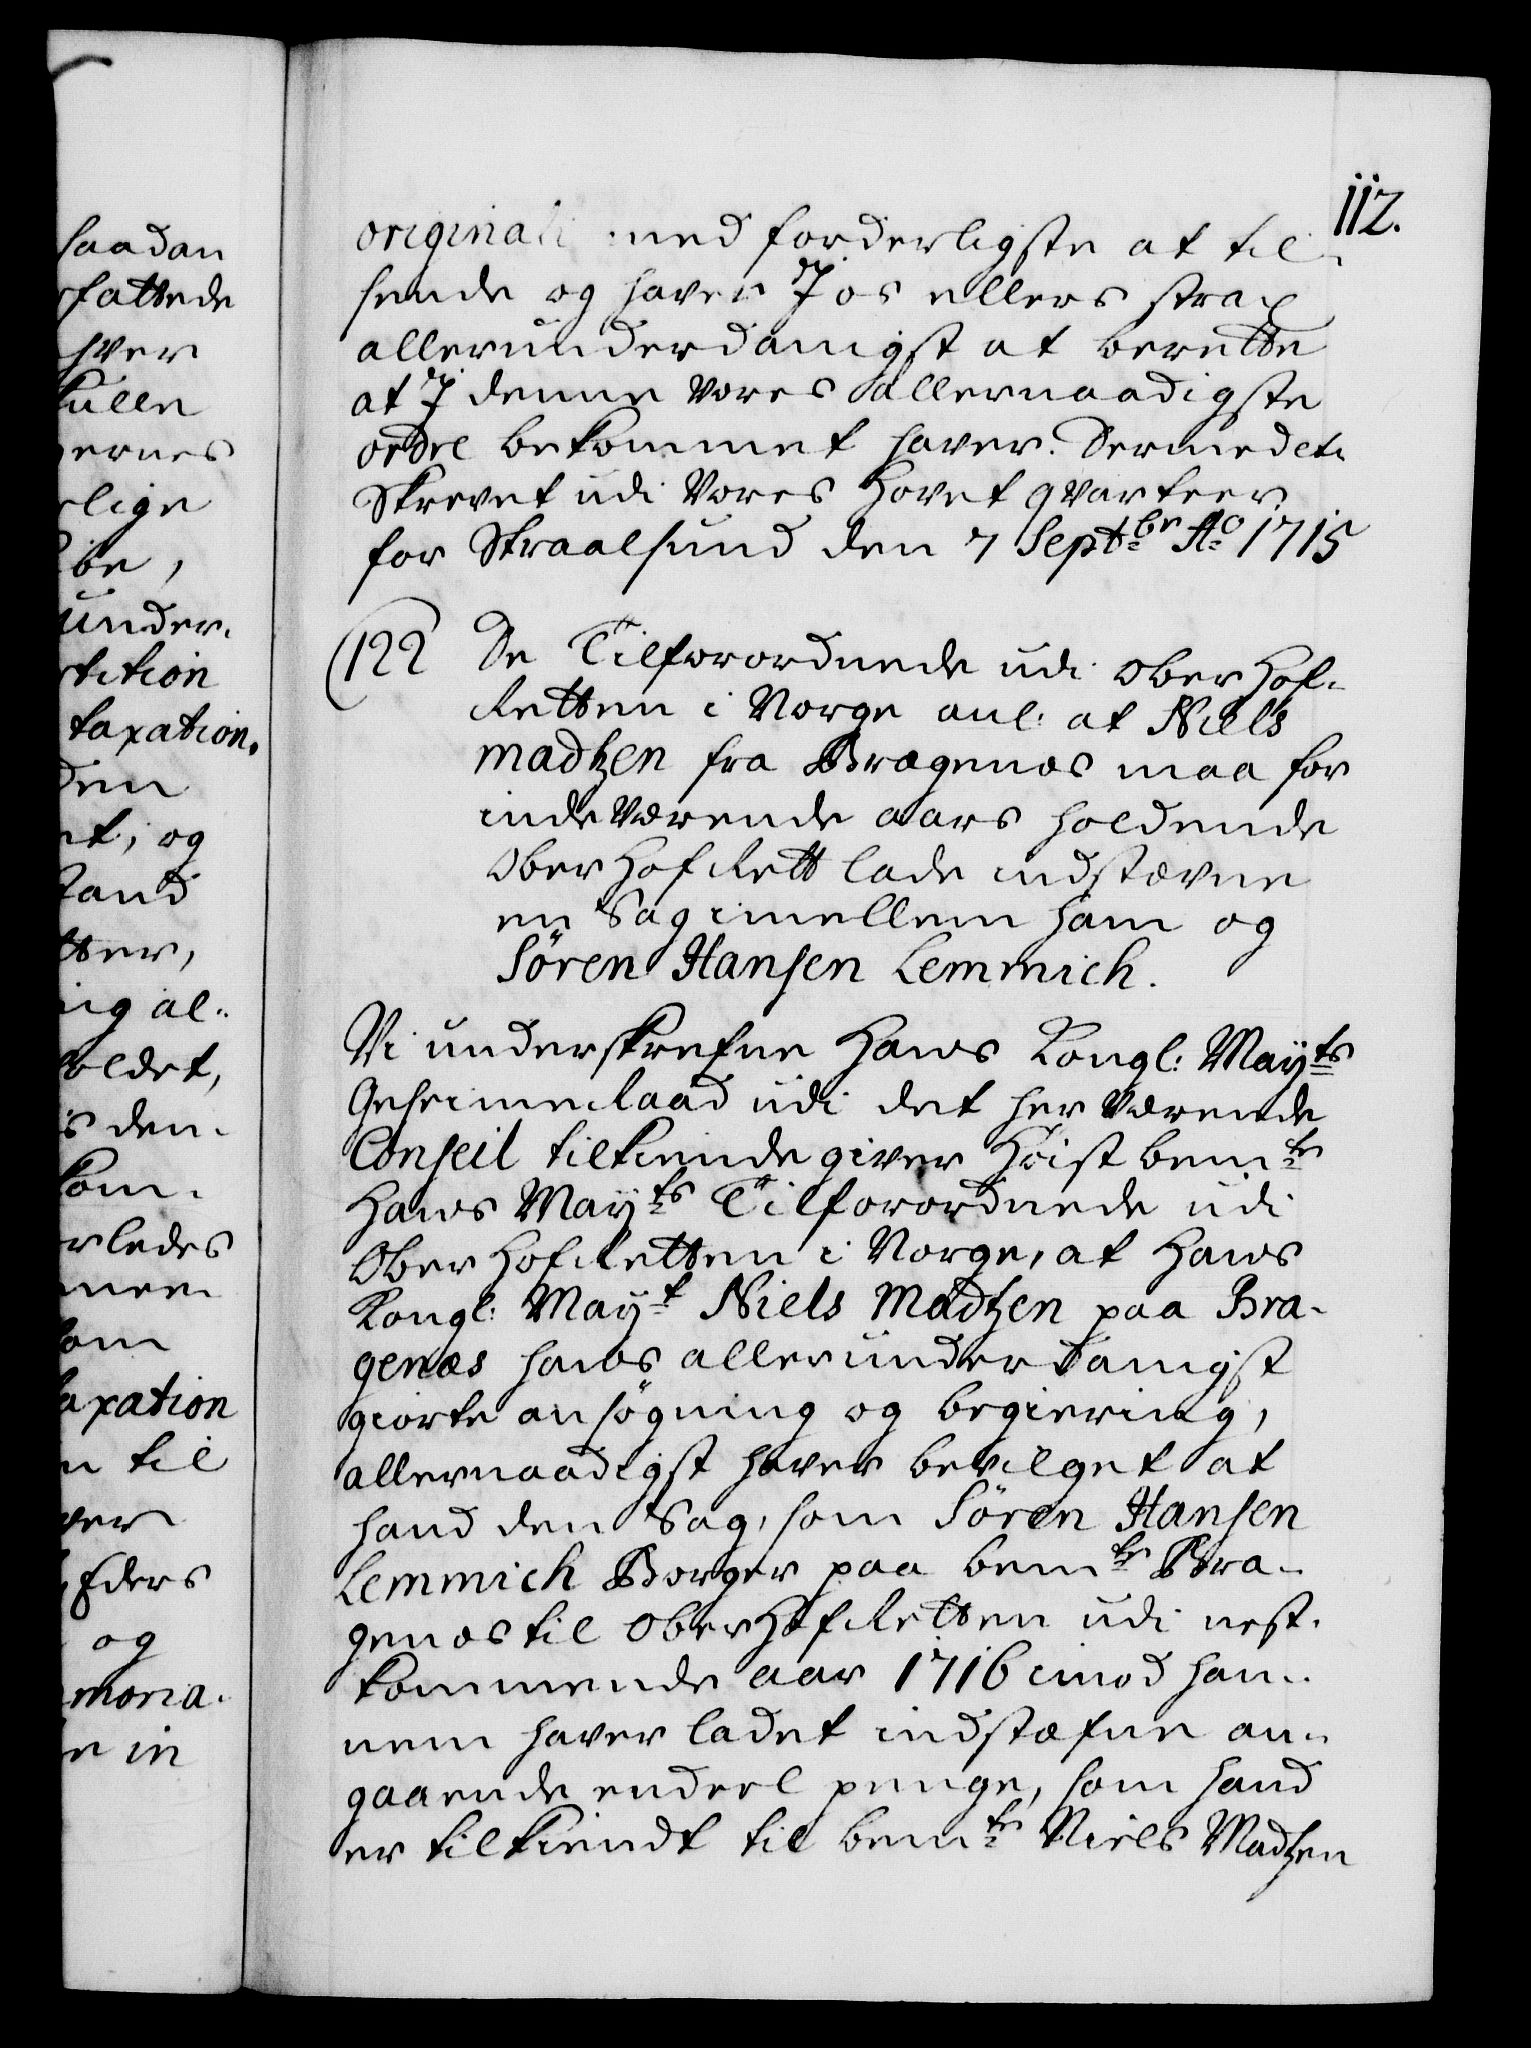 saadan
fattede
hver
kulle
ernes
lige
be,
under-
tition
taxation.
den
et, og
tand
tter,
ing al-
oldet,
s den-
kom-
rledes
meri
som
taxation
n til
ver
Eders
og
moria-
e in
112.
originali med forderligste at til-
sende og haver I os ellers strax
allerunderdanigst at berette
at I denne Vores allernaadigste
ordre bekommet haver. Dermed etc
Skrevet udi Vores Hovet qvarteer
for Straalsund den 7 Septbr Ao 1715
(122 De Tilforordnede udi Ober Hof-
Retten i Norge anl: at Niels
Madtzen fra Bragenæs maa for
indeværende aars holdende
Ober Hof Rett lade indstævne
en Sag imellem ham og
Sören Hansen Lemmich.
Vi underskrefne Hans Kongl: Mayts
Geheimeraad udi det her værende
Conseil tilkiendegiver Höist bemte
Hans Mayts Tilforordnede udi
Ober Hof Retten i Norge, at Hans
Kongl: Mayt Niels Madtzen paa Bra-
genæs hans allerunderdanigst
giorte ansögning og begiering,
allernaadigst haver bevilget at
hand den Sag, som Sören Hansen
Lemmich Borger paa bemte Bra-
genæs til Ober Hof Retten udi nest-
kommende aar 1716 imod han-
nem haver ladet indstæfne an-
gaaende endeel penge, som hand
er tilkiendt til bemte Niels Madtzen